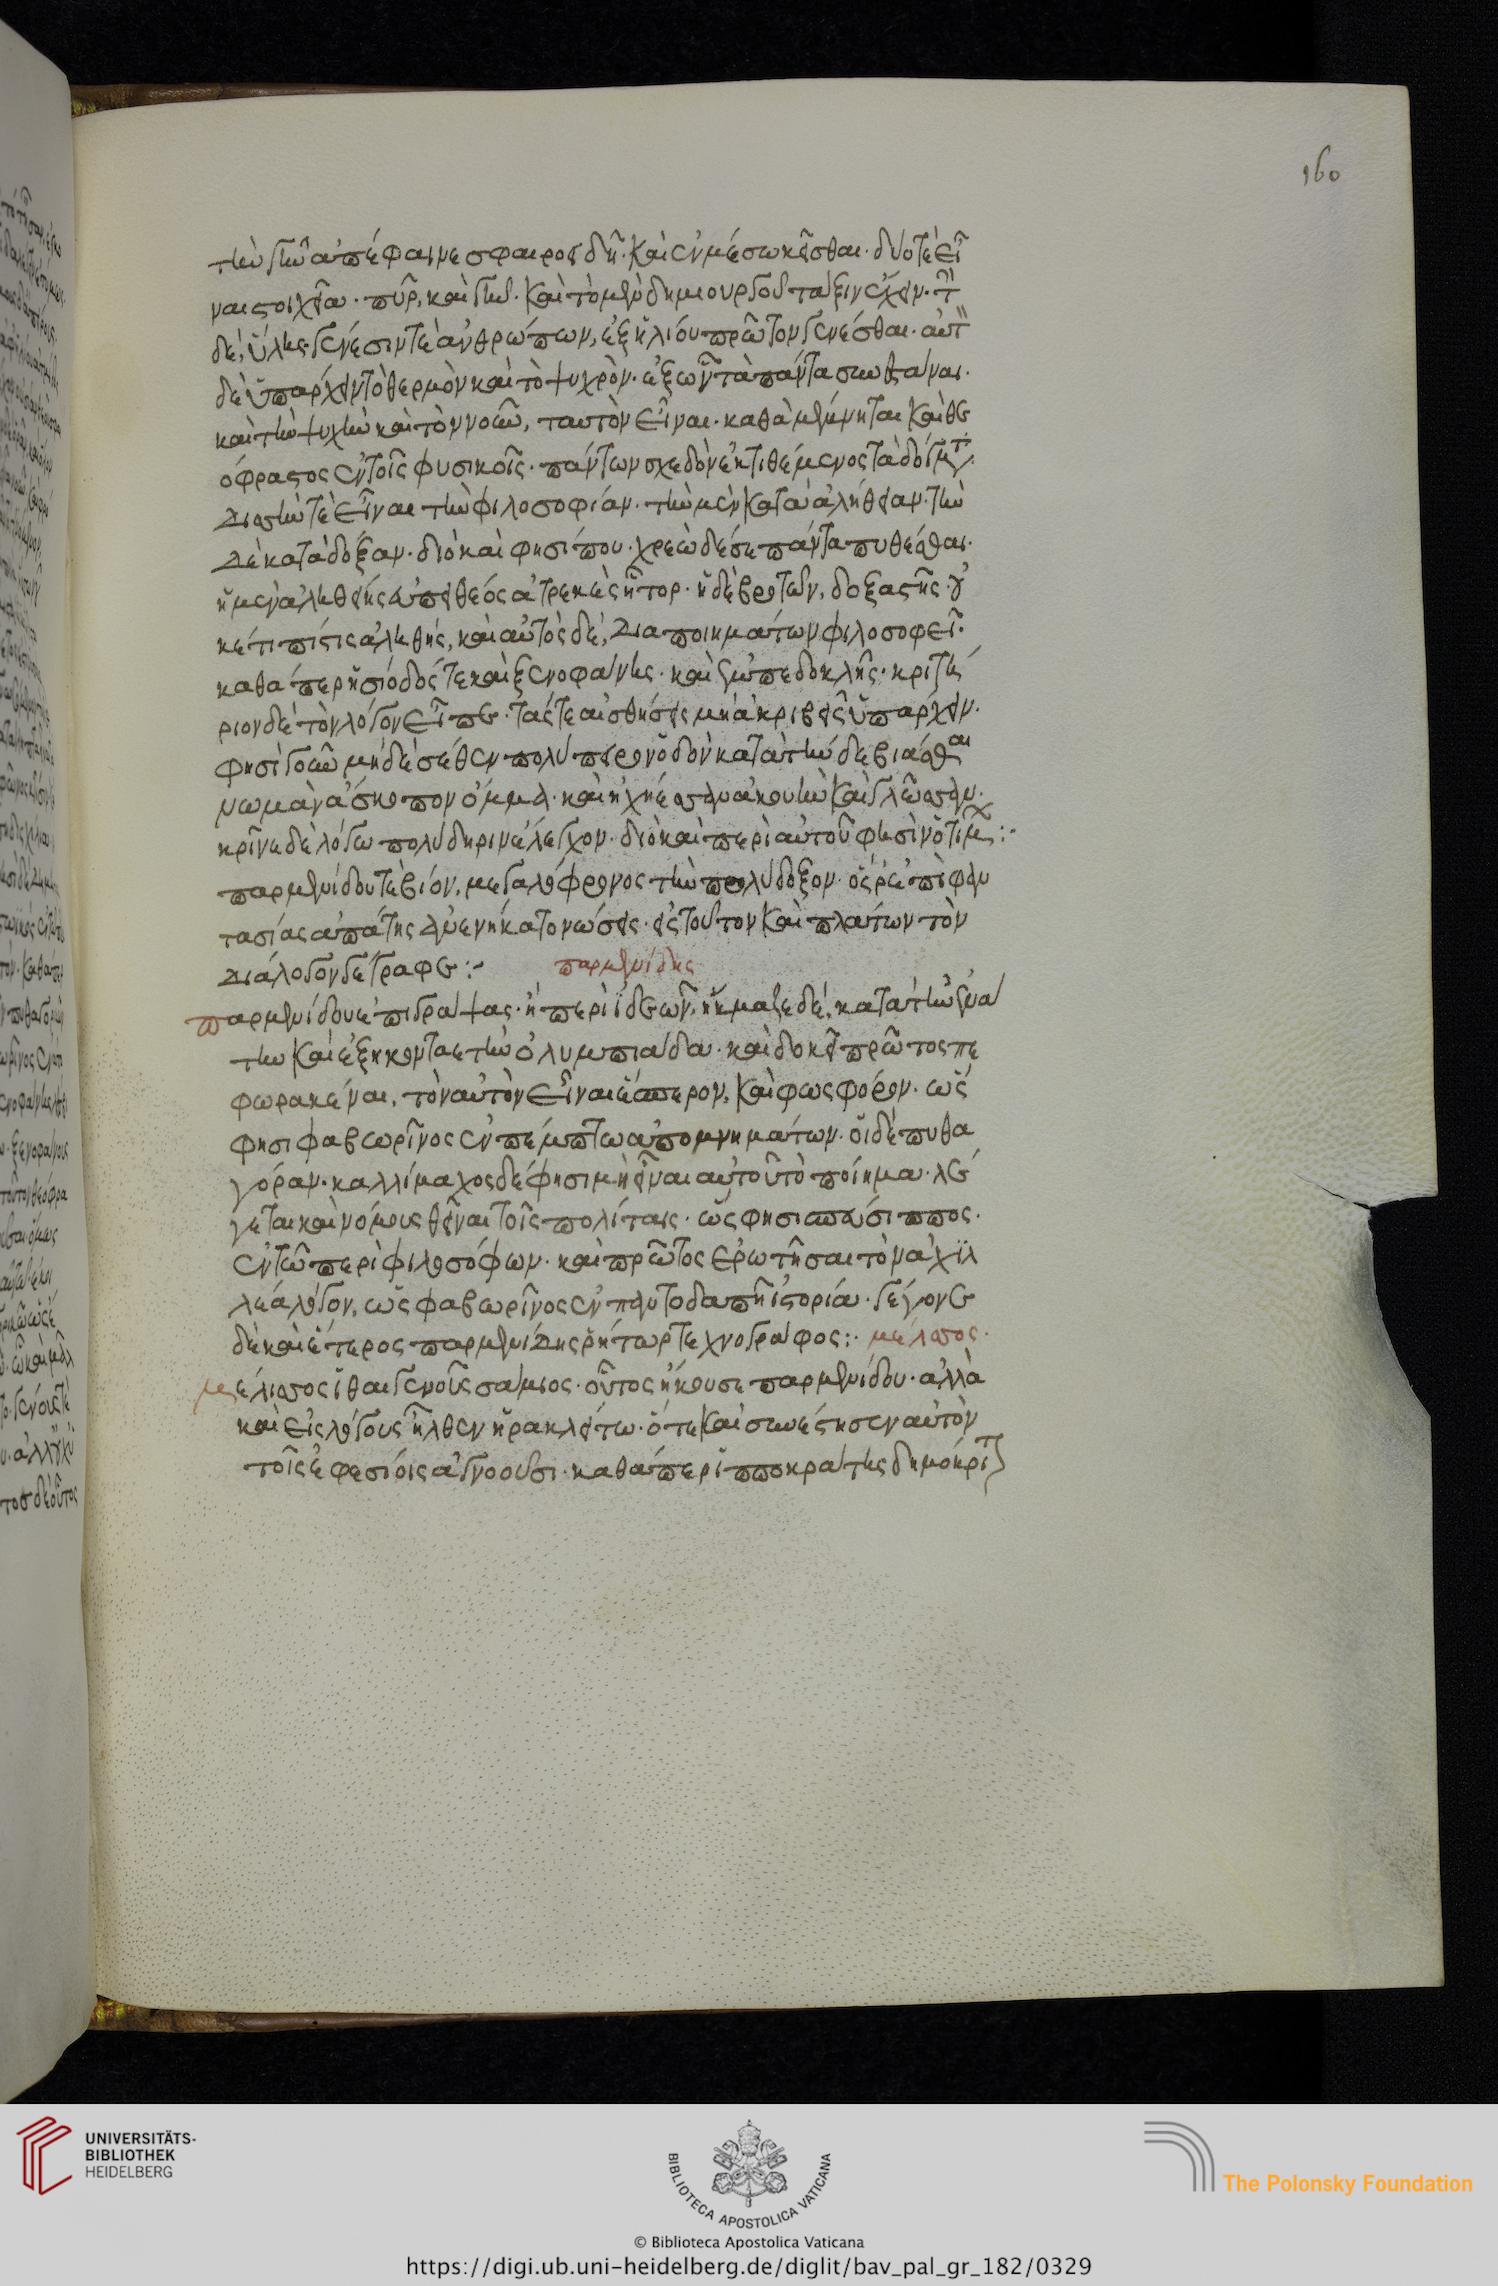 160
τὴν γῆν ἀπέφαινε σφαιροειδῆ· καὶ ἐν μέσω κεῖσθαι· δύο τὲ εἶ
ναι στοιχεῖα· πῦρ, καὶ γῆν· καὶ τὸ μὲν δημιουργοῦ τάξιν ἔχειν· τὴν
δὲ, ὕλης· γένεσίν τε ἀνθρώπων, ἐξ ἡλίου πρῶτον γενέσθαι· αὐτὸν
δὲ ὑπάρχειν τὸ θερμὸν καὶ τὸ ψυχρὸν· ἐξ ὧν τὰ πάντα συνεστάναι·
καὶ τὴν ψυχὴν καὶ τὸν νοῦν, ταυτὸν εἶναι· καθὰ μέμνηται καὶ θε
όφραστος ἐν τοῖς φυσικοῖς· πάντων σχεδὸν ἐκτιθέμενος τὰ δόγματα·
Δισσὴν τὲ εἶναι τὴν φιλοσοφίαν· τὴν μὲν κατὰ ἀλήθειαν· τὴν
Δὲ κατὰ δόξαν· διὸ καὶ φησί που· χρεὼ δέ σε πάντα πυθέσθαι·
ἠμὲν ἀληθείης εὐπειθέος ἀτρεκὲς ἦτορ· ἠδὲ βροτῶν, δοξαστῆς· οὐ
κέτι πίστις ἀληθής, καὶ αὐτὸς δὲ, Δια ποιημάτων φιλοσοφεῖ·
καθάπερ ἡσίοδός τε καὶ ξενοφάνης· καὶ ἐμπεδοκλῆς· κριτή
ριον δὲ τὸν λόγον εἶπε· τάς τε αἰσθήσεις μὴ ἀκριβεῖς ὑπάρχειν·
φησὶ γοῦν μηδέ σε θεν πολύπειρον ὁδὸν κατὰ τήν δε βιάσθαι
νωμᾶν ἄσκοπον ὄμμα· καὶ ἠχήεσσαν ἀκουὴν καὶ γλῶσσαν·
κρῖναι δὲ λόγω πολύδηριν ἔλεγχον· διὸ καὶ περὶ αὐτοῦ φησὶν ὁ τίμων:·
παρμενίδου τὲ βίον, μεγαλόφρονος τὴν πολύδοξον· ὅς ῥ' ἐπὶ φαν
τασίας ἀπάτης ἀνενείκατο νώσεις· εἰς τοῦτον καὶ πλάτων τὸν
Διάλογον γέγραφε:·   παρμενίδης
παρμενίδου ἐπιγράψας· ἢ περὶ ἰδεῶν, ἤκμαζε δὲ, κατὰ τὴν ἐνά
την καὶ ἑξηκοντάετὴν ὀλυμπιάδα· καὶ δοκεῖ πρῶτος πε
φωρακέναι, τὸν αὐτὸν εἶναι ἕσπερον, καὶ φωσφόρον· ὥς
φησι φαβωρῖνος ἐν πέμπτω ἀπομνημάτων· οἱ δὲ πυθα
γόραν· καλλίμαχος δέ φησι μὴ εἶναι αὐτοῦ τὸ ποίημα· λέ
γεται καὶ νόμους θεῖναι τοῖς πολίταις· ὥς φησι σπεύσιππος·
ἐν τῶ περὶ φιλοσόφων· καὶ πρῶτος ἐρωτῆσαι τὸν ἀχιλ
λέα λόγον, ὡς φαβωρῖνος ἐν παντοδαπῆ ἱστορία· γέγονε
δὲ καὶ ἕτερος παρμενίδης ῥήτωρ τεχνογράφος:· μέλισσος·
μέλισσος ἰθαιγένους σάμιος· οὗτος ἤκουσε παρμενίδου· ἀλλὰ
καὶ εἰς λόγους ἦλθεν ἡρακλείτω· ὅτε καὶ συνέστησεν αὐτὸν
τοῖς ἐφεσίοις ἀγνοοῦσι· καθάπερ ἱπποκράτης δημόκριτον
UNIVERSITÄTS-
BIBLIOTHEK
HEIDELBERG
BIBLIOTECA APOSTOLICA VATICANA
The Polonsky Foundation
© Biblioteca Apostolica Vaticana
https://digi.ub.uni-heidelberg.de/diglit/bav_pal_gr_182/0329